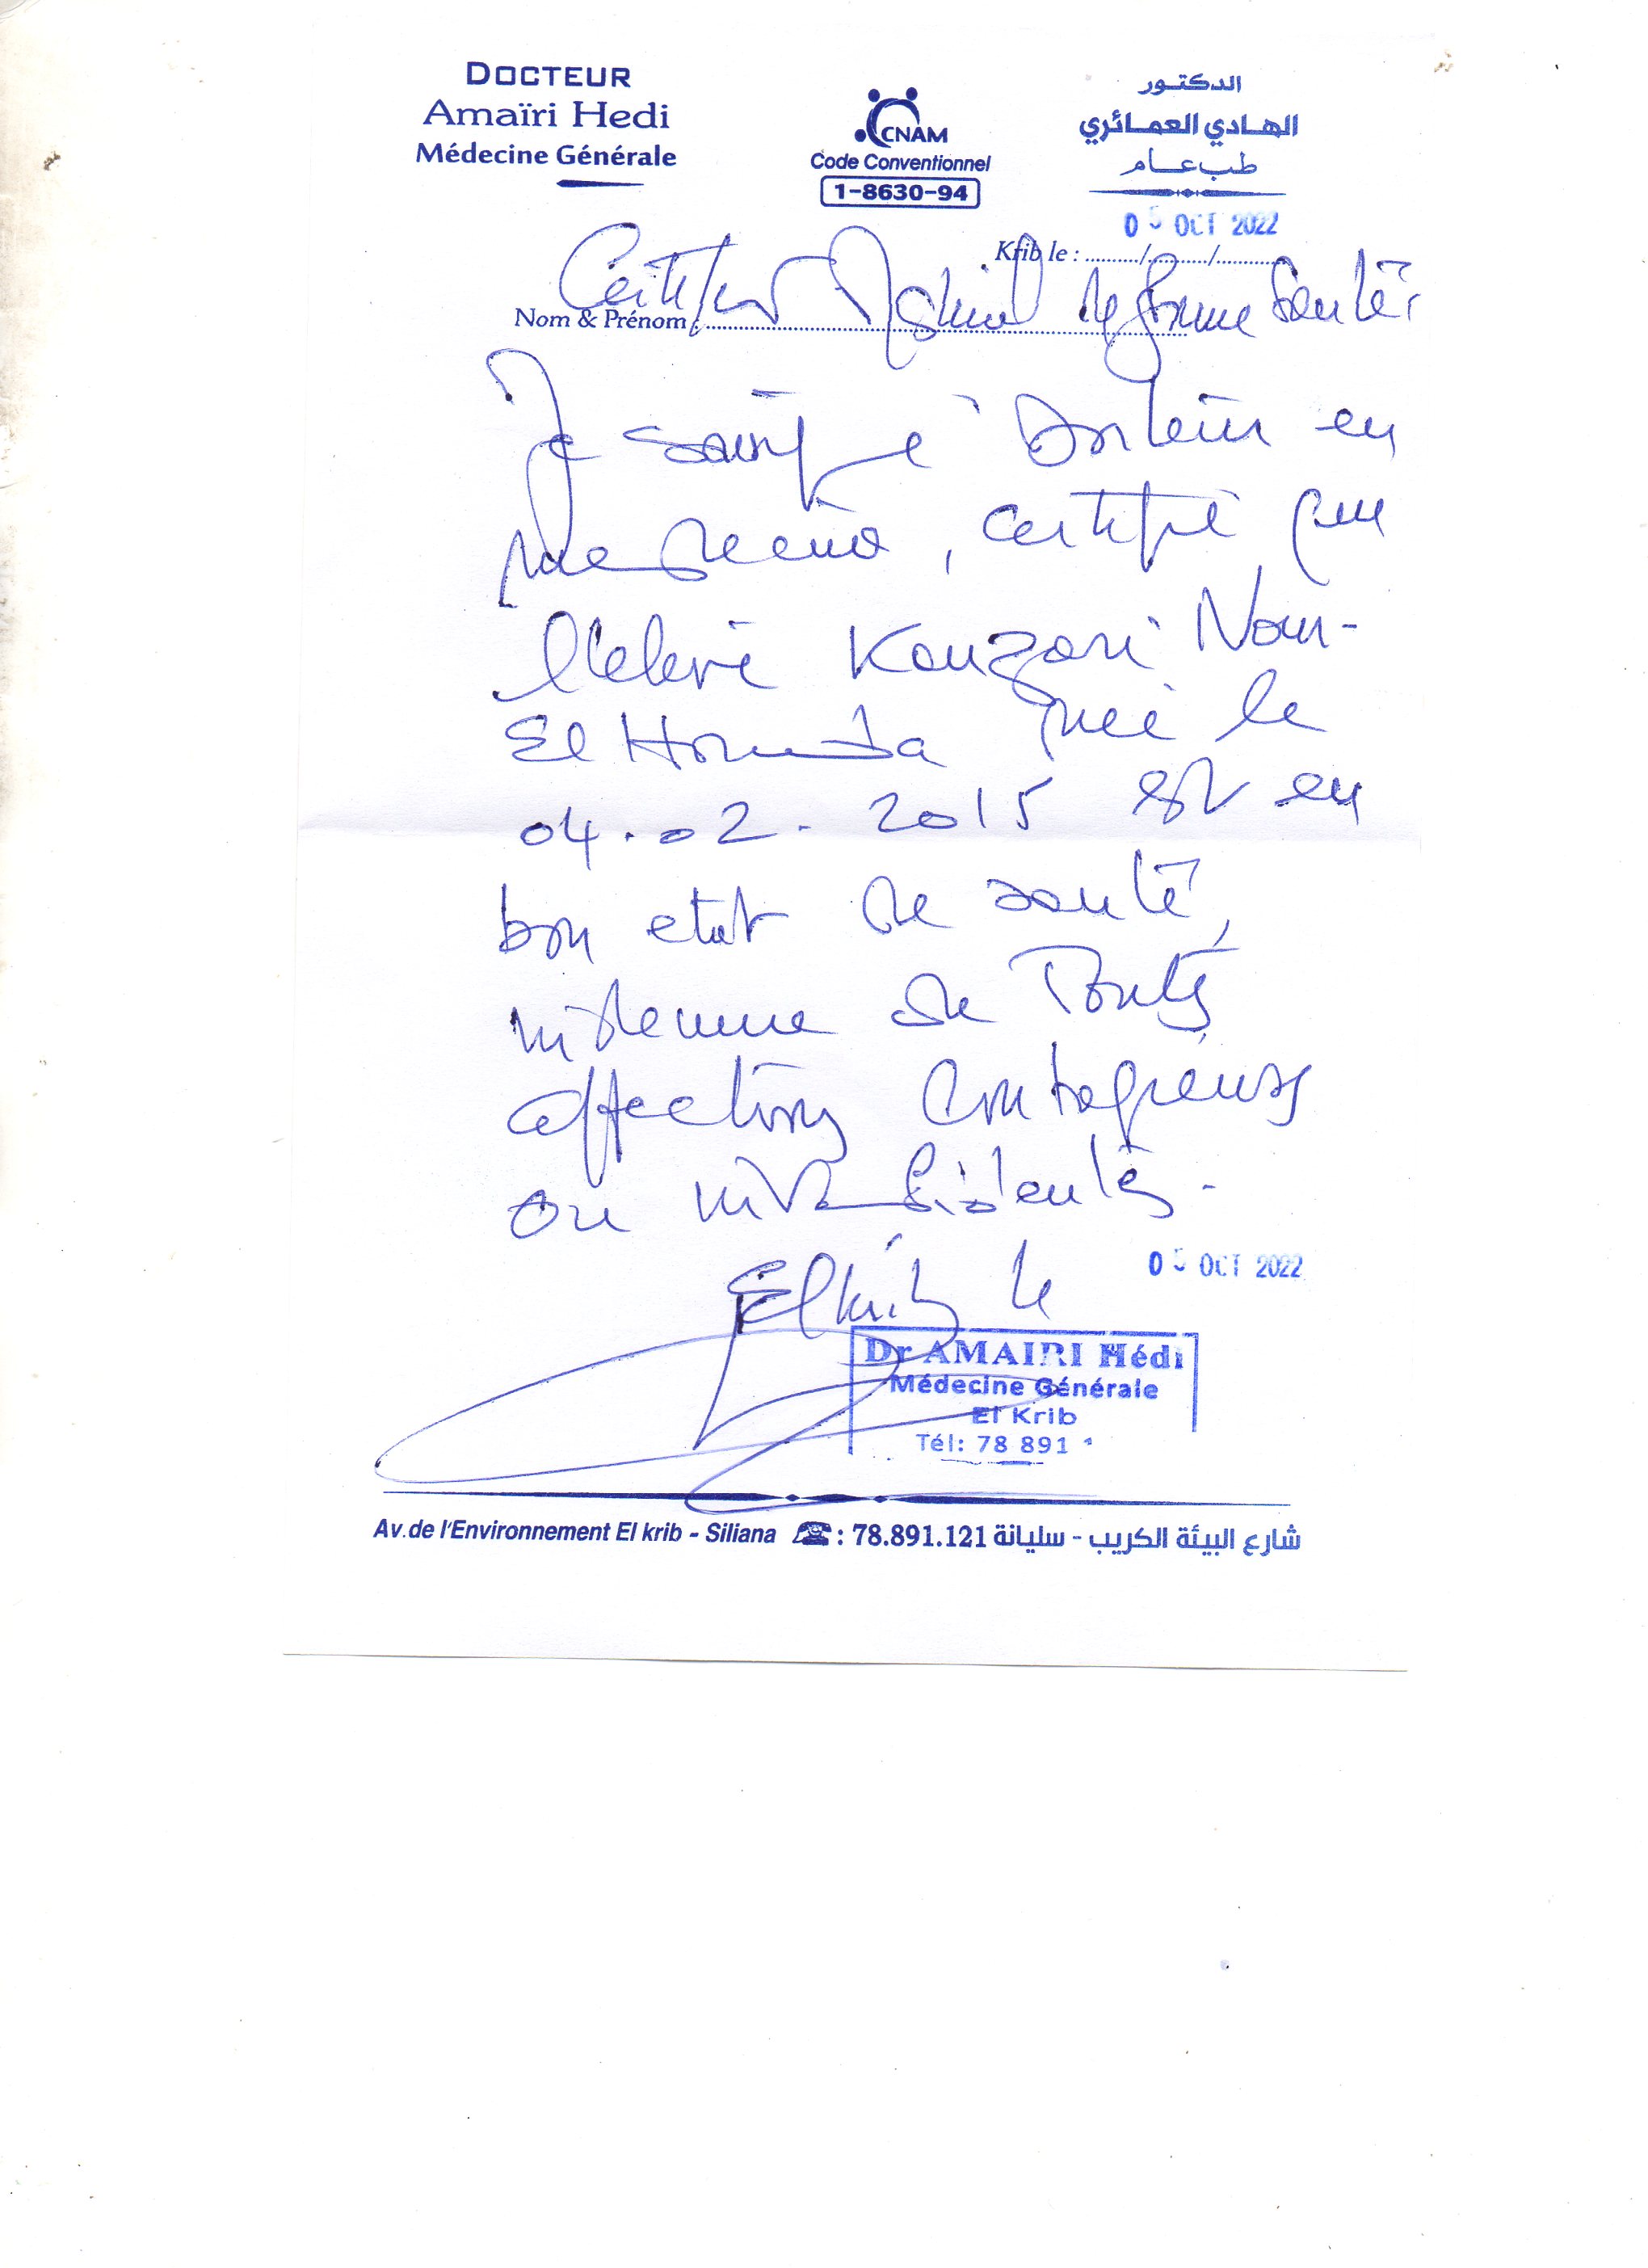 DOCTEUR
Amaïri Hedi
Médecine Générale
CNAM
Code Conventionnel
1-8630-94
الدكتور
الهادي العمائري
طب عام
05 OCT 2022
Krib le : ........../........../..........
Nom & Prénom :
Certificat Médical de bonne Santé
Je soussigné Docteur en
médecine, certifie que
l'élève Kouzari Nour-
El Houda née le
04.02.2015 est en
bon etat de santé,
indemne de Toutes
affections contagieuses
ou
El krib le
05 OCT 2022
Dr AMAIRI Hédi
Médecine Générale
El Krib
Tél: 78 891 1
Av.de l'Environnement El krib - Siliana ☎ : 78.891.121 شارع البيئة الكريب - سليانة